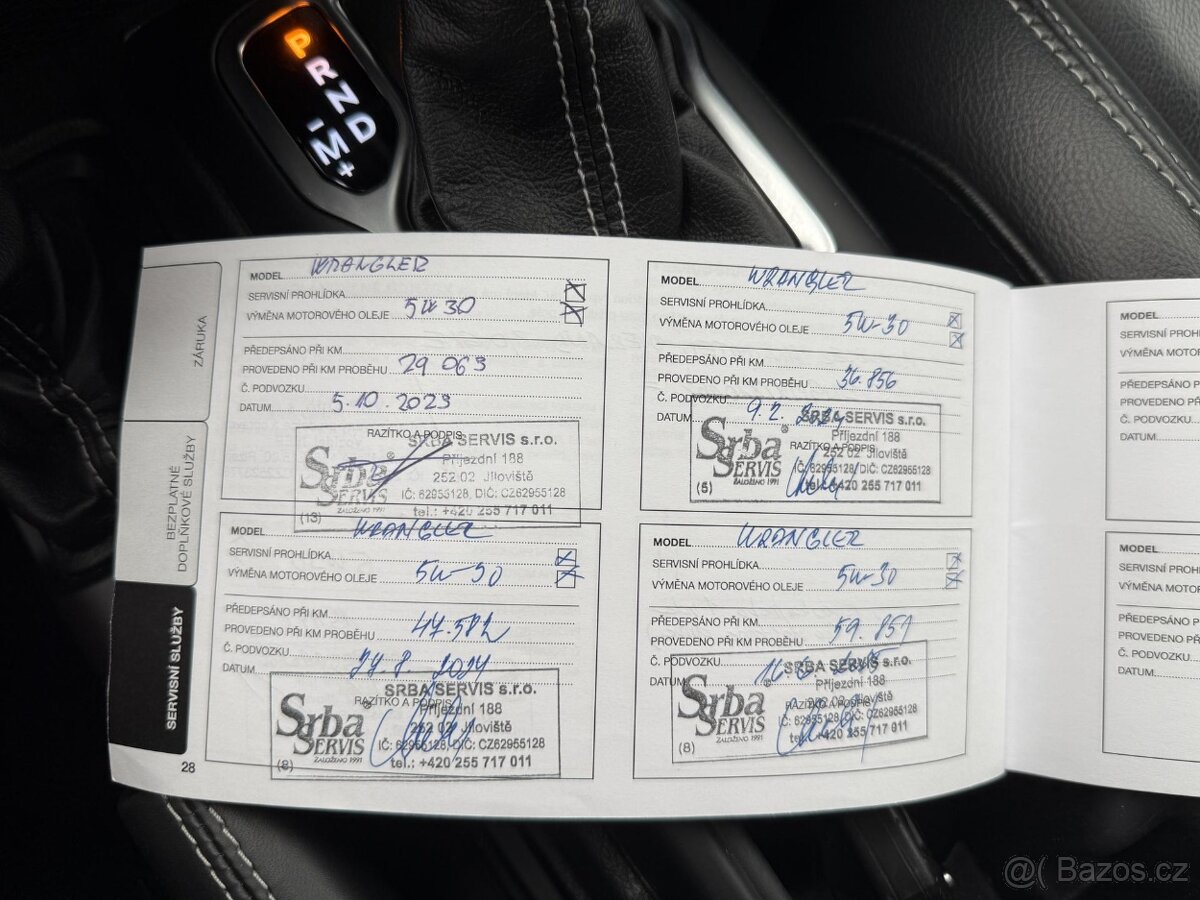 P
R
N
D
-
M
+
ZÁRUKA
BEZPLATNÉ
DOPLŇKOVÉ SLUŽBY
SERVISNÍ SLUŽBY
28
MODEL WRANGLER
SERVISNÍ PROHLÍDKA
VÝMĚNA MOTOROVÉHO OLEJE 5W30
PŘEDEPSÁNO PŘI KM
PROVEDENO PŘI KM PROBĚHU 29 063
Č. PODVOZKU
DATUM 5.10.2023
RAZÍTKO A PODPIS
Srba SERVIS
ZALOŽENO 1991
SRBA SERVIS s.r.o.
Příjezdní 188
252 02 Jíloviště
IČ: 62955128, DIČ: CZ62955128
tel.: +420 255 717 011
(13)
MODEL WRANGLER
SERVISNÍ PROHLÍDKA
VÝMĚNA MOTOROVÉHO OLEJE 5W-30
PŘEDEPSÁNO PŘI KM
PROVEDENO PŘI KM PROBĚHU 36.856
Č. PODVOZKU
DATUM 9.2.
RAZÍTKO A PODPIS
Srba SERVIS
ZALOŽENO 1991
SRBA SERVIS s.r.o.
Příjezdní 188
252 02 Jíloviště
IČ: 62955128, DIČ: CZ62955128
tel.: +420 255 717 011
(5)
MODEL WRANGLER
SERVISNÍ PROHLÍDKA
VÝMĚNA MOTOROVÉHO OLEJE 5W-30
PŘEDEPSÁNO PŘI KM
PROVEDENO PŘI KM PROBĚHU 47.582
Č. PODVOZKU
DATUM 8. 2024
RAZÍTKO A PODPIS
Srba SERVIS
ZALOŽENO 1991
SRBA SERVIS s.r.o.
Příjezdní 188
252 02 Jíloviště
IČ: 62955128, DIČ: CZ62955128
tel.: +420 255 717 011
(8)
MODEL WRANGLER
SERVISNÍ PROHLÍDKA
VÝMĚNA MOTOROVÉHO OLEJE 5W-30
PŘEDEPSÁNO PŘI KM
PROVEDENO PŘI KM PROBĚHU 59.851
Č. PODVOZKU
DATUM 16.
RAZÍTKO A PODPIS
Srba SERVIS
ZALOŽENO 1991
SRBA SERVIS s.r.o.
Příjezdní 188
252 02 Jíloviště
IČ: 62955128, DIČ: CZ62955128
tel.: +420 255 717 011
(8)
MODEL
SERVISNÍ
VÝMĚNA M
PŘEDEPSÁ
PROVEDENO
Č. PODVOZK
DATUM
MODEL
SERVISNÍ
VÝMĚNA M
PŘEDEPSÁ
PROVEDENO
Č. PODVOZK
DATUM
@( Bazoš.cz